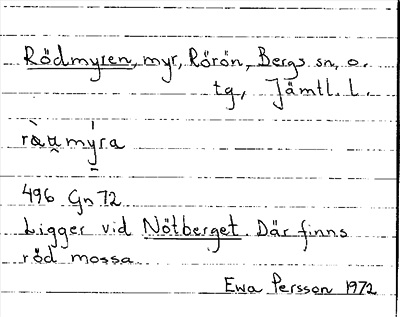 Rödmyren, myr, Rörön, Bergs sn, o.
tg, Jämtl. l.
ràu̯mýra
496 Gn 72
Ligger vid Nötberget. Där finns
röd mossa
Ewa Persson 1972